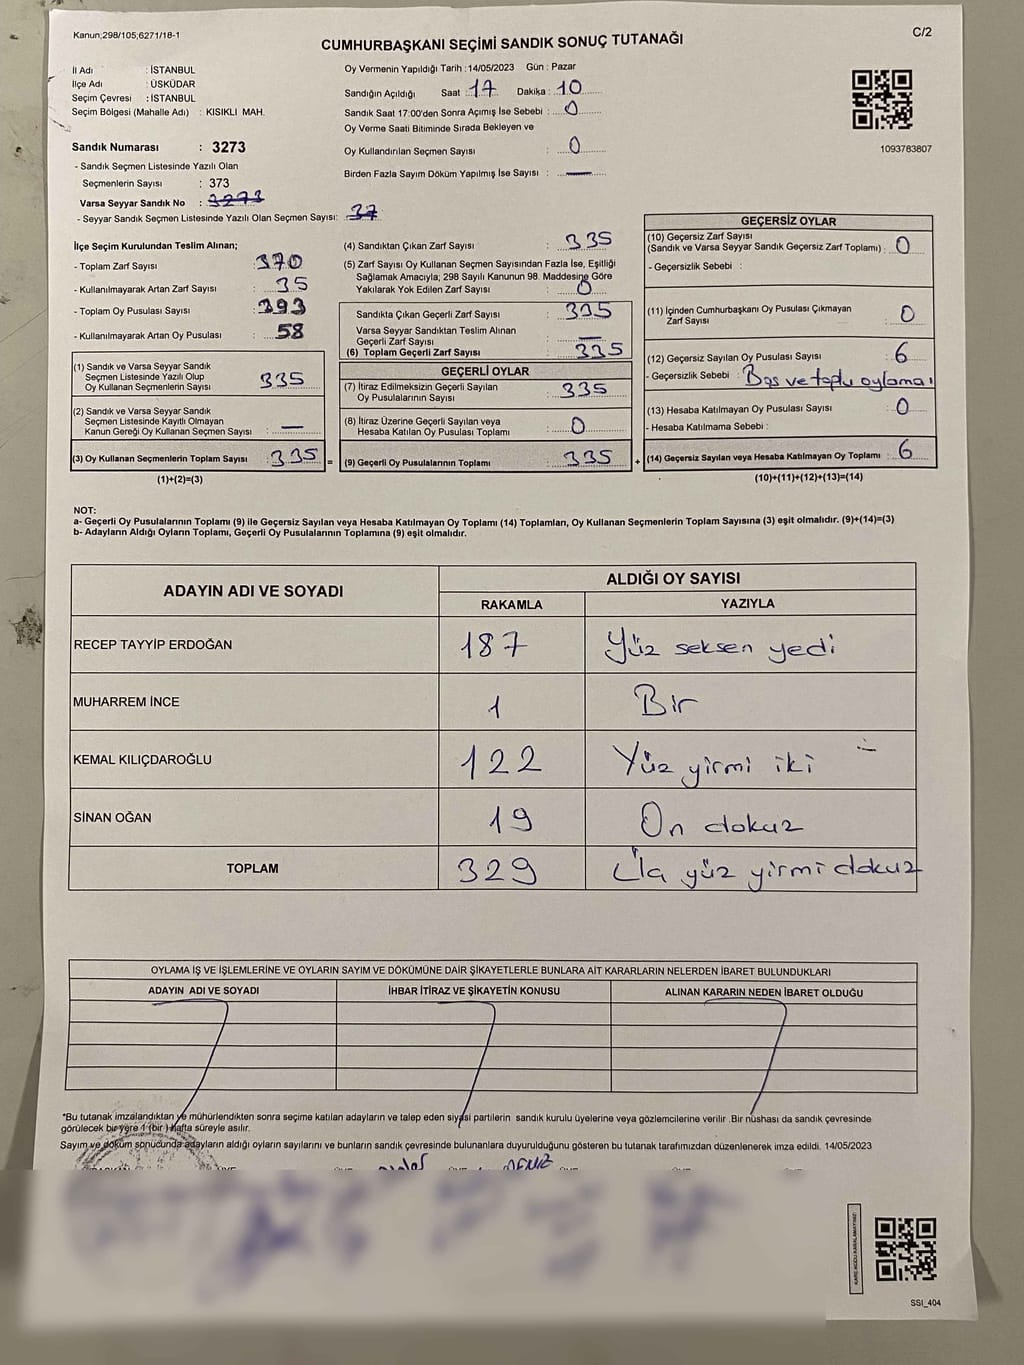 Kanun;298/105;6271/18-1
C/2
CUMHURBAŞKANI SEÇİMİ SANDIK SONUÇ TUTANAĞI
İl Adı : İSTANBUL
İlçe Adı : ÜSKÜDAR
Seçim Çevresi : İSTANBUL
Seçim Bölgesi (Mahalle Adı) : KISIKLI MAH.
Oy Vermenin Yapıldığı Tarih :14/05/2023 Gün : Pazar
Sandığın Açıldığı Saat : 17 Dakika : 10
Sandık Saat 17:00'den Sonra Açımış İse Sebebi : 0
Oy Verme Saati Bitiminde Sırada Bekleyen ve
Oy Kullandırılan Seçmen Sayısı : 0
Birden Fazla Sayım Döküm Yapılmış İse Sayısı : —
1093783807
Sandık Numarası : 3273
- Sandık Seçmen Listesinde Yazılı Olan
Seçmenlerin Sayısı : 373
Varsa Seyyar Sandık No : 3273
- Seyyar Sandık Seçmen Listesinde Yazılı Olan Seçmen Sayısı: 37
İlçe Seçim Kurulundan Teslim Alınan;
- Toplam Zarf Sayısı : 370
- Kullanılmayarak Artan Zarf Sayısı : 35
- Toplam Oy Pusulası Sayısı : 393
- Kullanılmayarak Artan Oy Pusulası : 58
(1) Sandık ve Varsa Seyyar Sandık
Seçmen Listesinde Yazılı Olup
Oy Kullanan Seçmenlerin Sayısı : 335
(2) Sandık ve Varsa Seyyar Sandık
Seçmen Listesinde Kayıtlı Olmayan
Kanun Gereği Oy Kullanan Seçmen Sayısı : —
(3) Oy Kullanan Seçmenlerin Toplam Sayısı : 335 =
(1)+(2)=(3)
(4) Sandıktan Çıkan Zarf Sayısı : 335
(5) Zarf Sayısı Oy Kullanan Seçmen Sayısından Fazla İse, Eşitliği
Sağlamak Amacıyla; 298 Sayılı Kanunun 98. Maddesine Göre
Yakılarak Yok Edilen Zarf Sayısı : 0
Sandıkta Çıkan Geçerli Zarf Sayısı : 335
Varsa Seyyar Sandıktan Teslim Alınan
Geçerli Zarf Sayısı : —
(6) Toplam Geçerli Zarf Sayısı : 335
GEÇERLİ OYLAR
(7) İtiraz Edilmeksizin Geçerli Sayılan
Oy Pusulalarının Sayısı : 335
(8) İtiraz Üzerine Geçerli Sayılan veya
Hesaba Katılan Oy Pusulası Toplamı : 0
(9) Geçerli Oy Pusulalarının Toplamı : 335 +
GEÇERSİZ OYLAR
(10) Geçersiz Zarf Sayısı
(Sandık ve Varsa Seyyar Sandık Geçersiz Zarf Toplamı) : 0
- Geçersizlik Sebebi :
(11) İçinden Cumhurbaşkanı Oy Pusulası Çıkmayan
Zarf Sayısı : 0
(12) Geçersiz Sayılan Oy Pusulası Sayısı : 6
- Geçersizlik Sebebi : Boş ve toplu oylama
(13) Hesaba Katılmayan Oy Pusulası Sayısı : 0
- Hesaba Katılmama Sebebi :
(14) Geçersiz Sayılan veya Hesaba Katılmayan Oy Toplamı : 6
(10)+(11)+(12)+(13)=(14)
NOT:
a- Geçerli Oy Pusulalarının Toplamı (9) ile Geçersiz Sayılan veya Hesaba Katılmayan Oy Toplamı (14) Toplamları, Oy Kullanan Seçmenlerin Toplam Sayısına (3) eşit olmalıdır. (9)+(14)=(3)
b- Adayların Aldığı Oyların Toplamı, Geçerli Oy Pusulalarının Toplamına (9) eşit olmalıdır.
ADAYIN ADI VE SOYADI
ALDIĞI OY SAYISI
RAKAMLA YAZIYLA
RECEP TAYYİP ERDOĞAN 187 Yüz seksen yedi
MUHARREM İNCE 1 Bir
KEMAL KILIÇDAROĞLU 122 Yüz yirmi iki
SİNAN OĞAN 19 On dokuz
TOPLAM 329 Üç yüz yirmi dokuz
OYLAMA İŞ VE İŞLEMLERİNE VE OYLARIN SAYIM VE DÖKÜMÜNE DAİR ŞİKAYETLERLE BUNLARA AİT KARARLARIN NELERDEN İBARET BULUNDUKLARI
ADAYIN ADI VE SOYADI İHBAR İTİRAZ VE ŞİKAYETİN KONUSU ALINAN KARARIN NEDEN İBARET OLDUĞU
*Bu tutanak imzalandıktan ve mühürlendikten sonra seçime katılan adayların ve talep eden siyasi partilerin sandık kurulu üyelerine veya gözlemcilerine verilir. Bir nüshası da sandık çevresinde
görülecek bir yere 1 (bir ) hafta süreyle asılır.
Sayım ve döküm sonucunda adayların aldığı oyların sayılarını ve bunların sandık çevresinde bulunanlara duyurulduğunu gösteren bu tutanak tarafımızdan düzenlenerek imza edildi. 14/05/2023
DENİZ
SSI_404